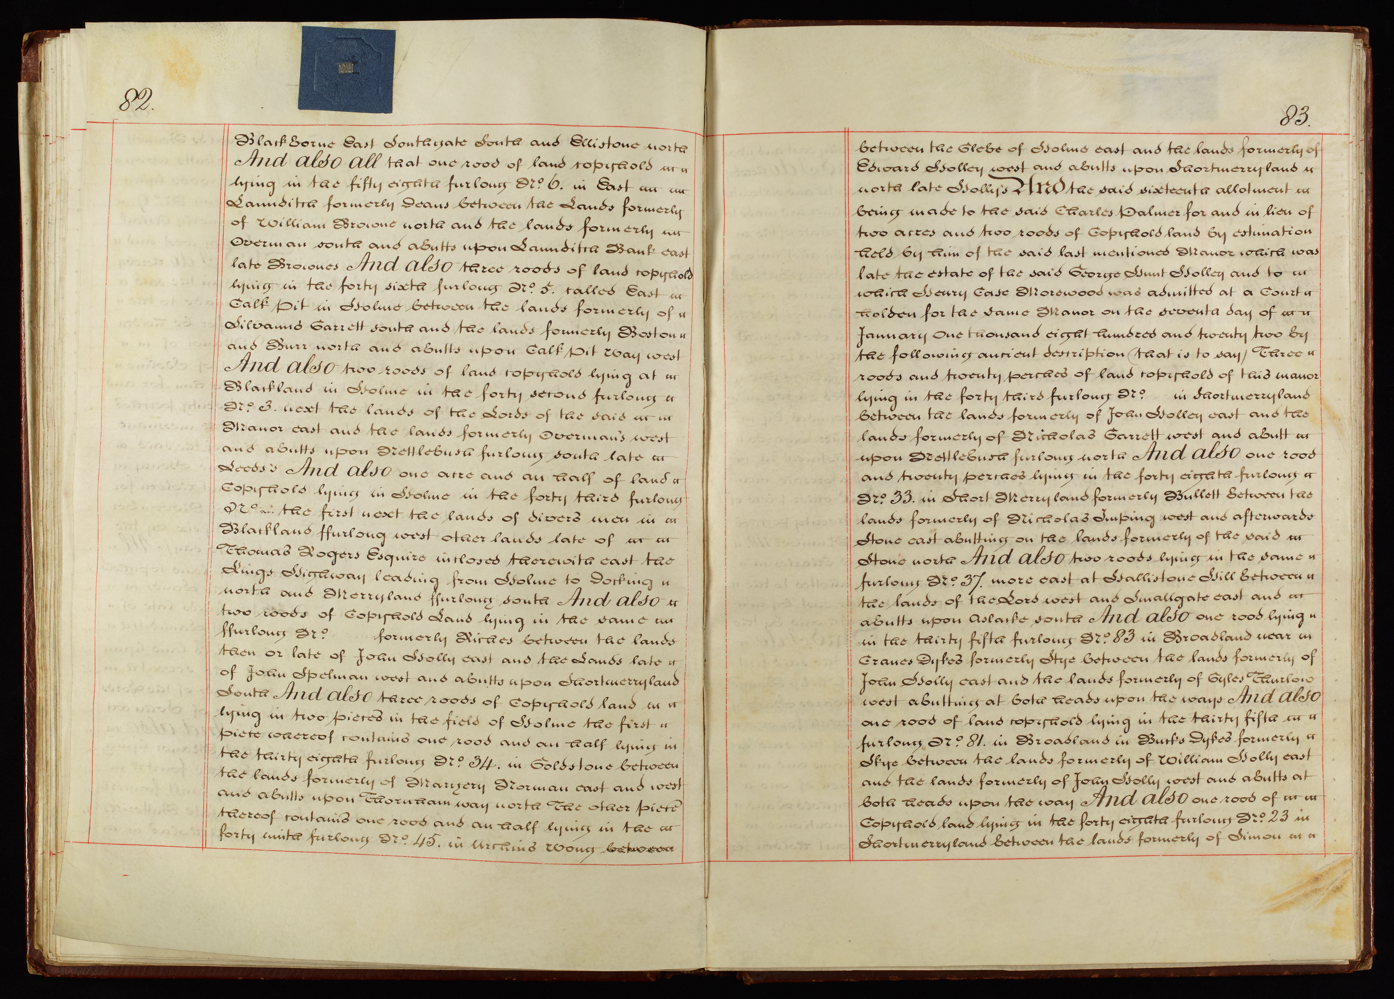 82.
Blackborne East Southgate South and Ellistone north
And also all that one rood of land copyhold
lying in the fifty eighth furlong No. 6. in East
Launditch formerly Deans between the Lands formerly
of William Browne north and the lands formerly
Overman south and abutts upon Launditch Bank east
late Brownes And also three roods of land copyhold
lying in the forty sixth furlong No. 5. called East
Calk Pit in Holme between the lands formerly of
Silvanus Garrett south and the lands formerly Boston
and Burr north and abutts upon Calk Pit way west
And also two roods of land copyhold lying at
Blackland in Holme in the forty second furlong
No. 3. next the lands of the Lords of the said
Manor east and the lands formerly Overman's west
and abutts upon Nettlebush furlong south late
Leeds's And also one acre and an half of land
Copyhold lying in Holme in the forty third furlong
No. the first next the lands of divers men in
Blackland ffurlong west other lands late of
Thomas Rogers Esquire inclosed therewith east the
Kings Highway leading from Holme to Docking
north and Merryland ffurlong south And also
two roods of Copyhold Land lying in the same
ffurlong No. formerly Riches between the lands
then or late of John Holly east and the Lands late
of John Spelman west and abutts upon Shortmerryland
South And also three roods of Copyhold land in
lying in two pieces in the field of Holme the first
piece whereof contains one rood and an half lying in
the thirty eighth furlong No. 34. in Goldstone between
the lands formerly of Margery Norman east and west
and abutts upon Thornham way north The other piece
thereof contains one rood and an half lying in the
forty ninth furlong No. 45. in Urchins Wong between
83.
between the Glebe of Holme east and the lands formerly of
Edward Holley west and abutts upon Shortmerryland
north late Holly's And the said sixteenth allotment
being made to the said Charles Palmer for and in lieu of
two acres and two roods of Copyhold land by estimation
held by him of the said last mentioned Manor which was
late the estate of the said George Hunt Holley and to
which Henry Case Morewood was admitted at a Court
holden for the same Manor on the seventh day of
January One thousand eight hundred and twenty two by
the following antient description (that is to say) Three
roods and twenty perches of land copyhold of this manor
lying in the forty third furlong No. in Shortmerryland
between the lands formerly of John Holley east and the
lands formerly of Nicholas Garrett west and abutt
upon Nettlebush furlong north And also one rood
and twenty perches lying in the forty eighth furlong
No. 33. in Short Merryland formerly Bullett between the
lands formerly of Nicholas Imping west and afterwards
Stone east abutting on the lands formerly of the said
Stone north And also two roods lying in the same
furlong No. 37. more east at Hallistone Hill between
the lands of the Lord west and Smallgate east and
abutts upon Aslacke south And also one rood lying
in the thirty fifth furlong No. 83 in Broadland near
Cranes Dykes formerly Skye between the lands formerly of
John Holly east and the lands formerly of Gyles Thurlow
west abutting at both heads upon the ways And also
one rood of land copyhold lying in the thirty fifth
furlong No. 81. in Broadland in Bucks Dykes formerly
Skye between the lands formerly of William Holly east
and the lands formerly of John Holly west and abutts at
both heads upon the way And also one rood of
Copyhold land lying in the forty eighth furlong No. 23 in
Shortmerryland between the lands formerly of Simon